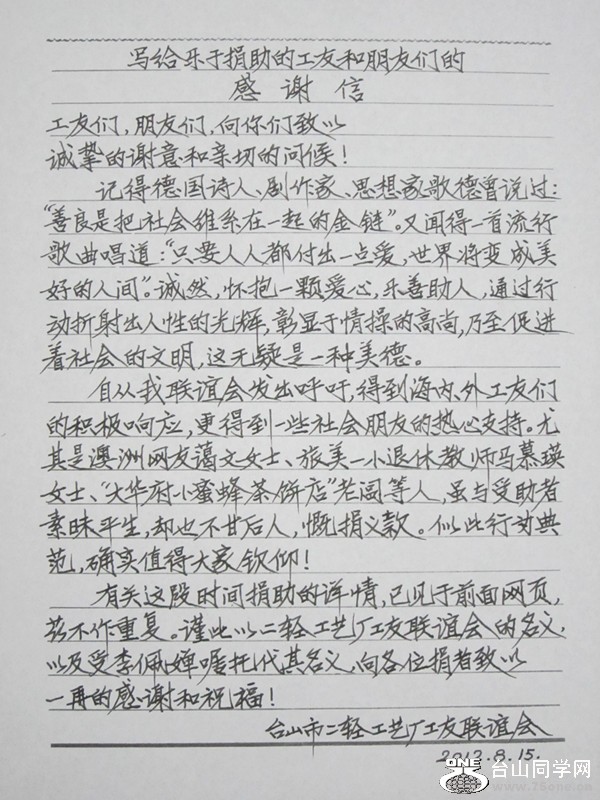 写给乐于捐助的工友和朋友们的
感谢信
工友们,朋友们,向你们致以
诚挚的谢意和亲切的问候!
记得德国诗人、剧作家、思想家歌德曾说过:
“善良是把社会维系在一起的金链”。又闻得一首流行
歌曲唱道:“只要人人都付出一点爱,世界将变成美
好的人间”。诚然,怀抱一颗爱心,乐善助人,通过行
动折射出人性的光辉,彰显于情操的高尚,乃至促进
着社会的文明,这无疑是一种美德。
自从我联谊会发出呼吁,得到海内、外工友们
的积极响应,更得到一些社会朋友的热心支持。尤
其是澳洲网友蔼文女士、旅美一小退休教师马慕瑛
女士、“大华府小蜜蜂茶饼店”老阆等人,虽与受助者
素昧平生,却也不甘后人,慨捐义款。似此行动典
范,确实值得大家钦仰!
有关这段时间捐助的详情,已见于前面网页,
兹不作重复。谨此以二轻工艺厂工友联谊会的名义,
以及受李佩婵嘱托代其名义,向各位捐者致以
一再的感谢和祝福!
台山市二轻工艺厂工友联谊会
2012.8.15.
ONE 台山同学网
www.75one.cn